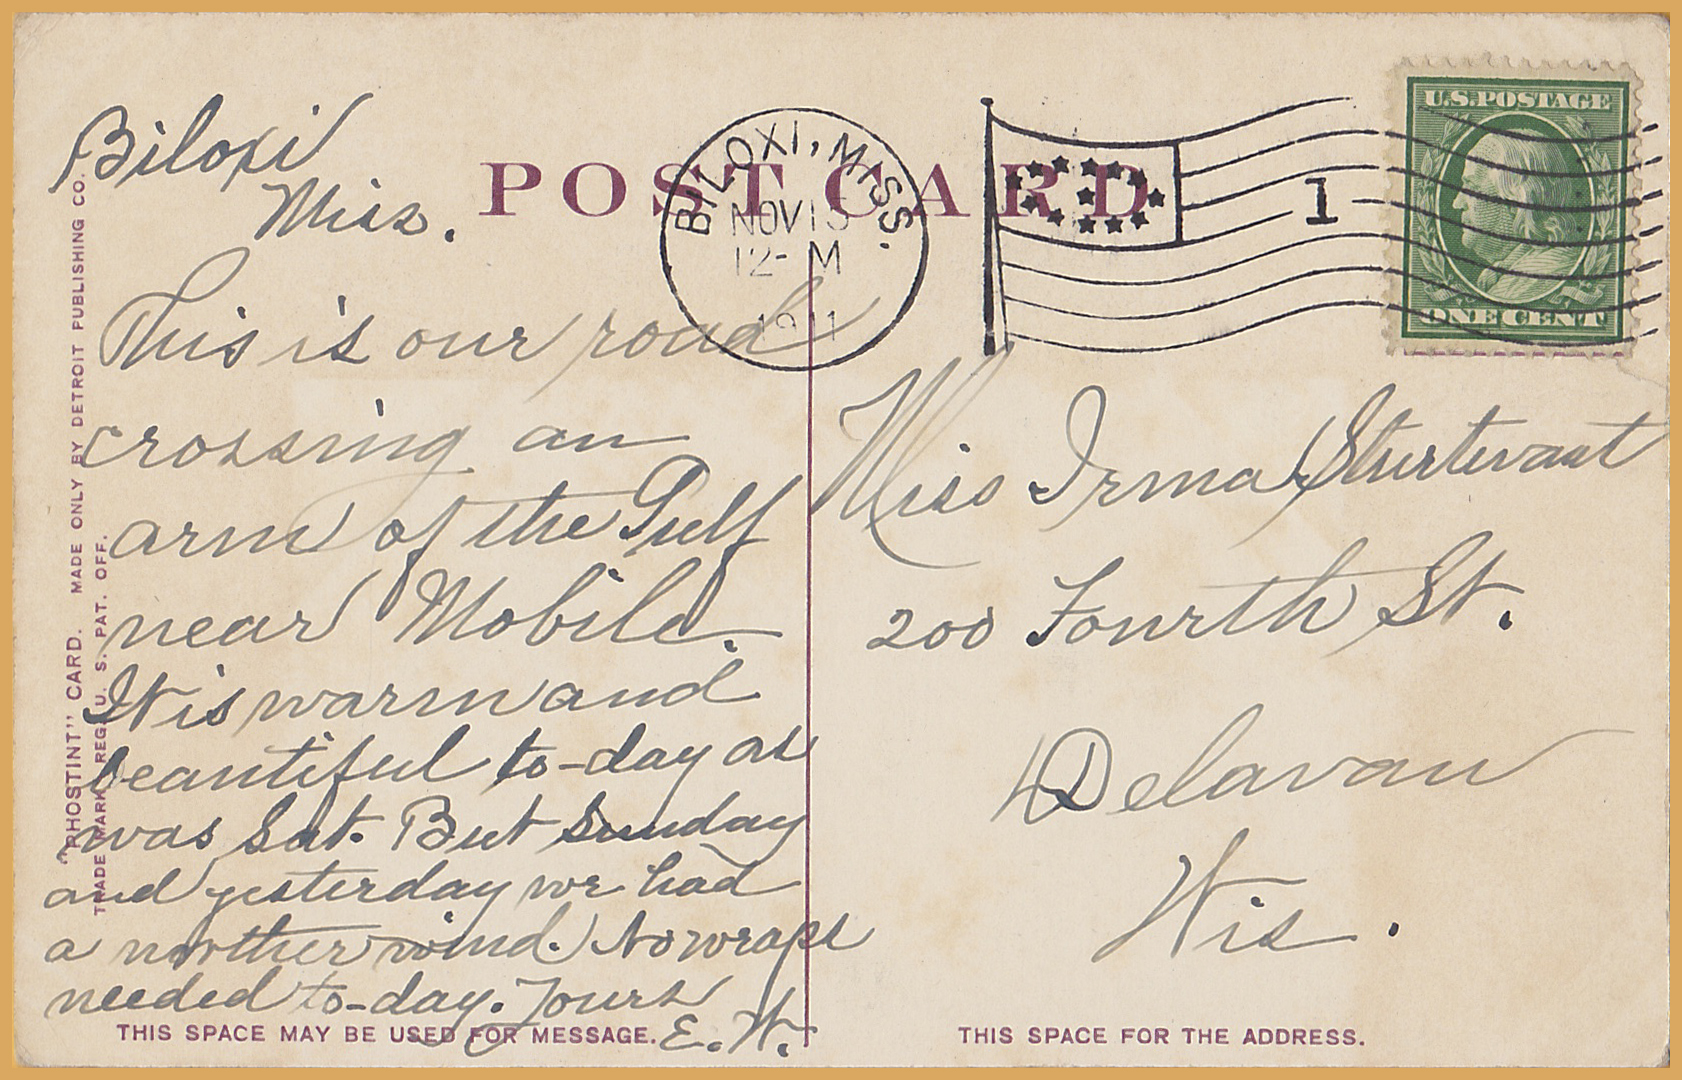 POST CARD
BILOXI, MISS.
NOV 15
12- M
1911
1
U.S. POSTAGE
ONE CENT
Biloxi
Miss.
This is our road
crossing an
arm of the Gulf
near Mobile.
It is warm and
beautiful to-day as
was Sat. But Sunday
and yesterday we had
a norther wind. No wraps
needed to-day. Yours
E. W.
Miss Irma Sturtevant
200 Fourth St.
Delavan
Wis.
"PHOSTINT" CARD. MADE ONLY BY DETROIT PUBLISHING CO.
TRADE MARK REG. U. S. PAT. OFF.
THIS SPACE MAY BE USED FOR MESSAGE.
THIS SPACE FOR THE ADDRESS.